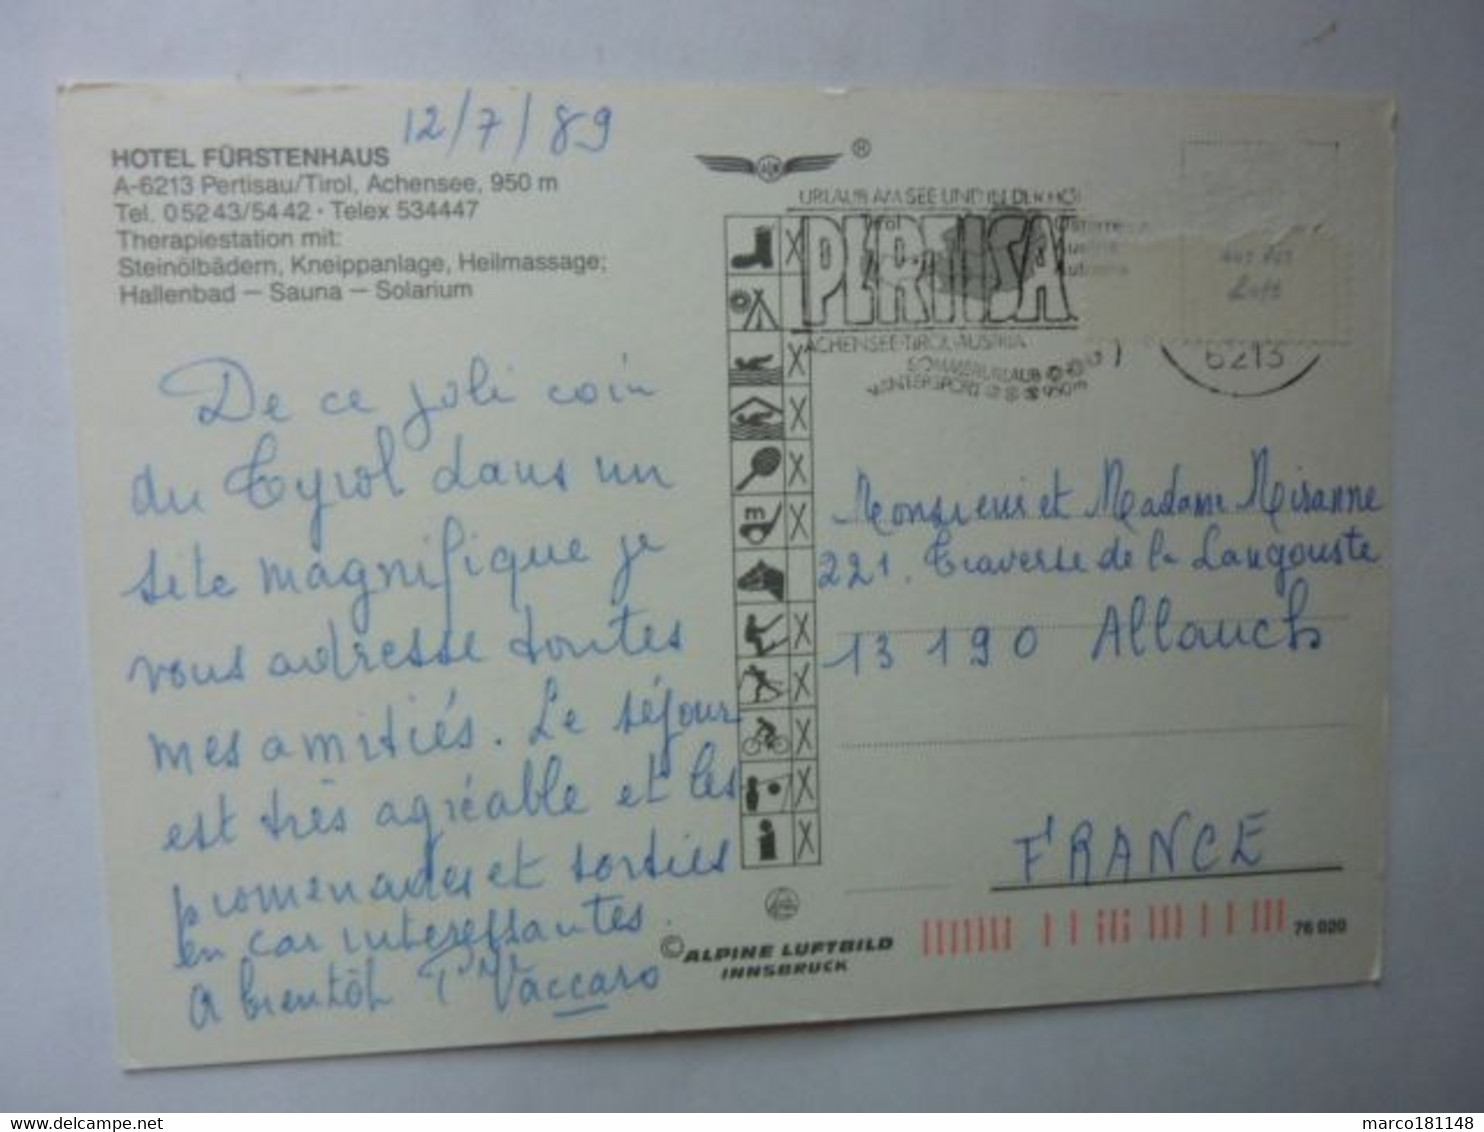 12/7/89
HOTEL FÜRSTENHAUS
A-6213 Pertisau/Tirol, Achensee, 950 m
Tel. 05243/5442 · Telex 534447
Therapiestation mit:
Steinölbädern, Kneippanlage, Heilmassage;
Hallenbad – Sauna – Solarium
De ce joli coin
du Tyrol dans un
site magnifique je
vous adresse toutes
mes amitiés. Le séjour
est très agréable et les
promenades et sorties
en car intéressantes.
A bientôt Vaccaro
®
URLAUB AM SEE UND IN DER HÖ
PERTISA
ACHENSEE-TIROL-AUSTRIA
SOMMERURLAUB
WINTERSPORT 950m
6213
aus der
Luft
m
Monsieur et Madame Misanne
221. Traverse de la Langouste
13190 Allauch
FRANCE
© ALPINE LUFTBILD
INNSBRUCK
76 020
marco181148